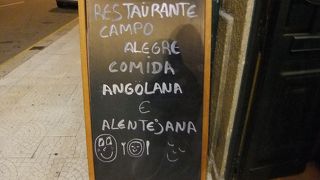 RESTAURANTE
CAMPO
ALEGRE
COMIDA
ANGOLANA
E
ALENTEJANA